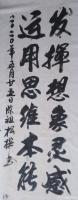 发挥想象灵感
运用思维本能
二〇二〇年五月廿五日陈祖松撰书